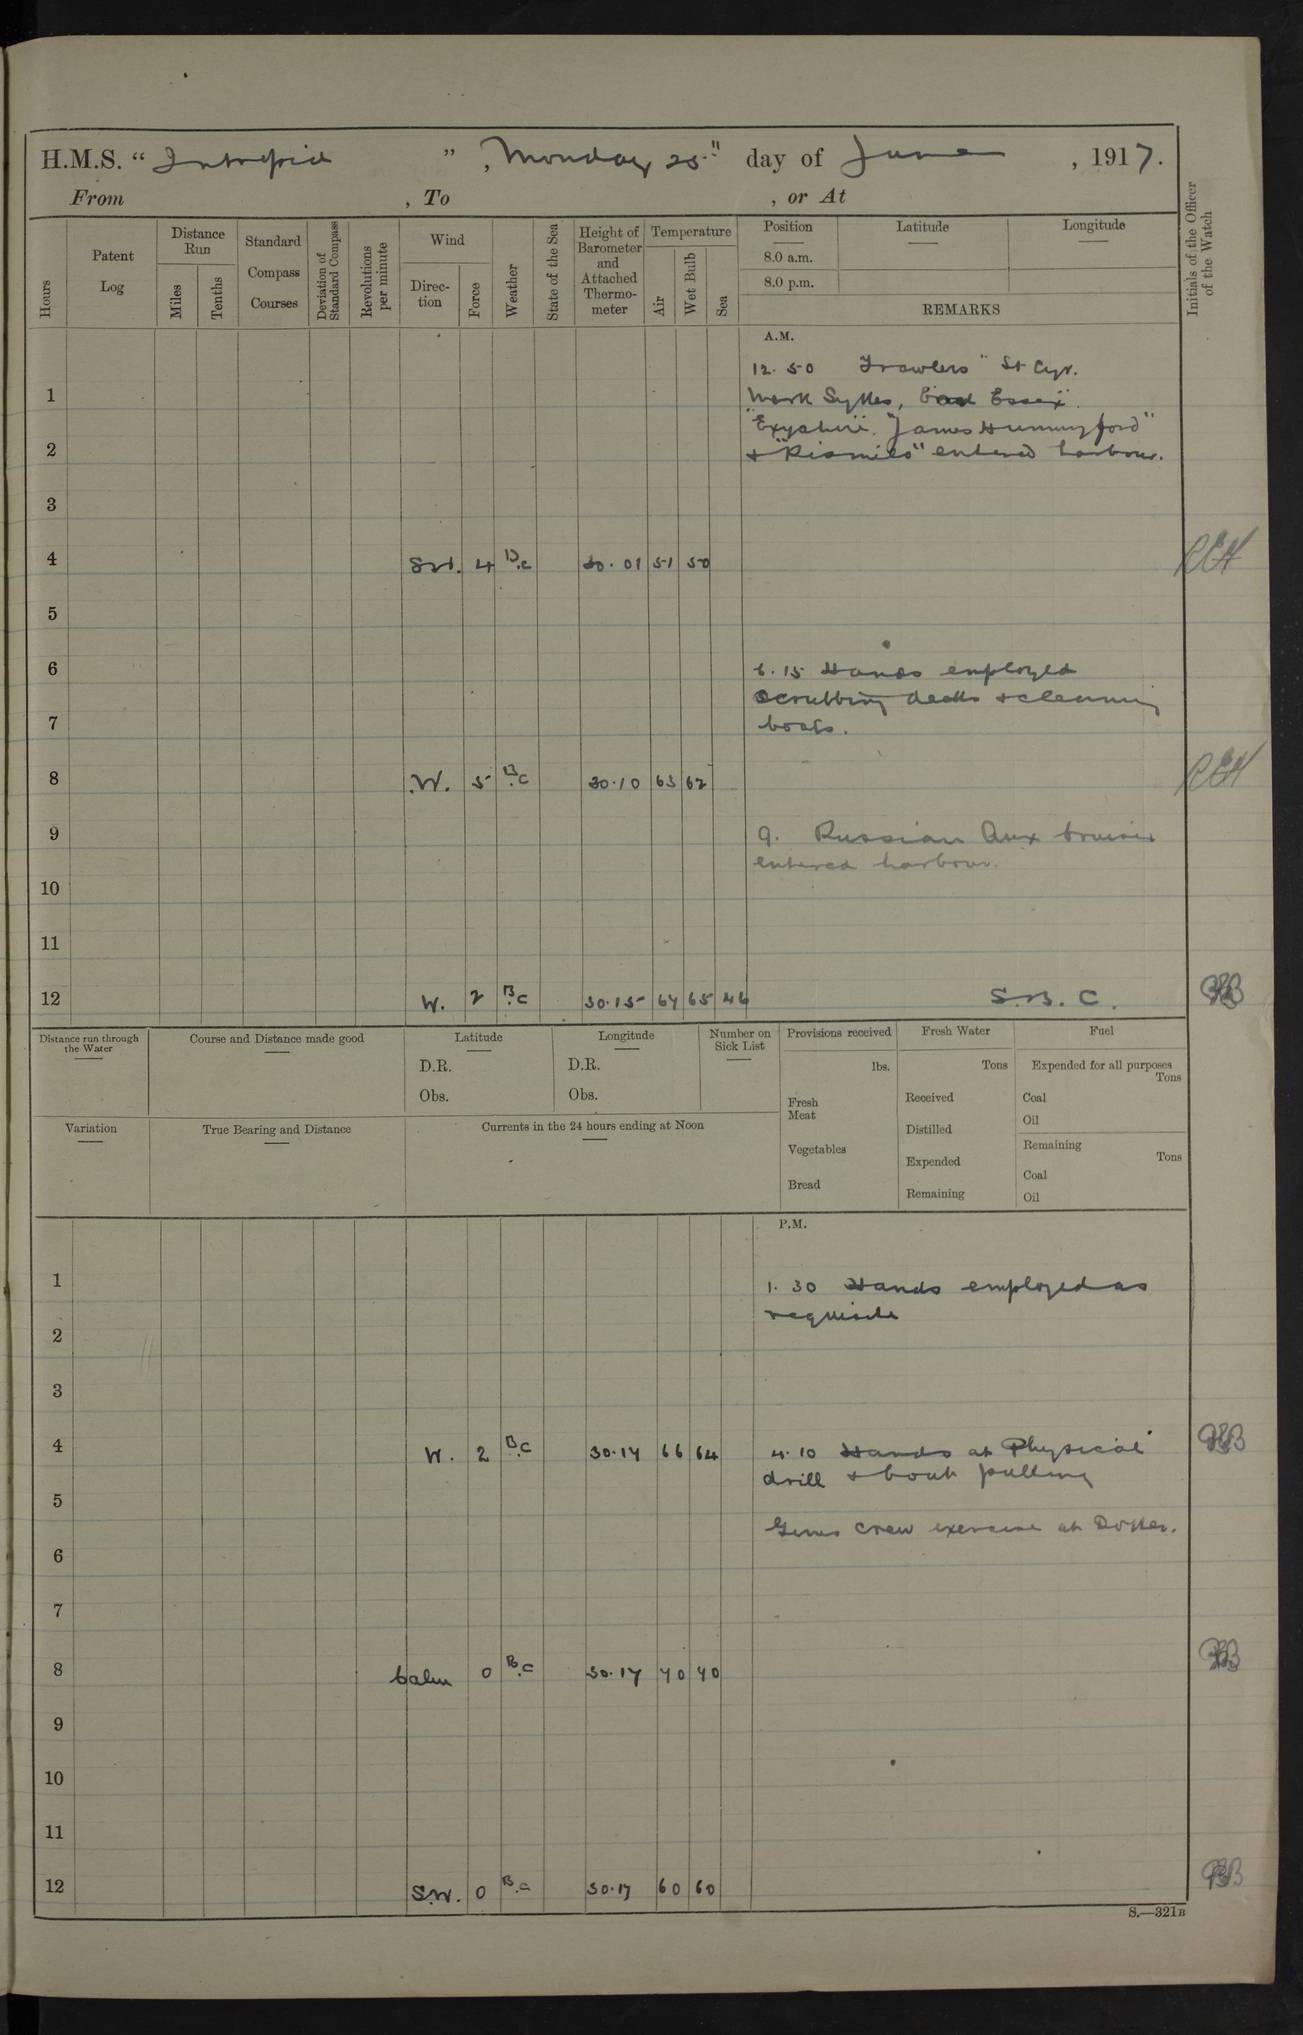 H.M.S. “ Intrepid ” , Monday 25th day of June , 1917.
From , To , or At
Hours
Patent Log
Distance Run
Miles
Tenths
Standard Compass Courses
Deviation of Standard Compass
Revolutions per minute
Wind
Direc-tion
Force
Weather
State of the Sea
Height of Barometer and Attached Thermo-meter
Temperature
Air
Wet Bulb
Sea
Position
8.0 a.m.
8.0 p.m.
Latitude
Longitude
REMARKS
Initials of the Officer of the Watch
A.M.
12.50 Trawlers "St Cyr.
1
Mark Sykes, Essex".
2
"James Hunnyford"
entered harbour.
3
4 SW. 4 B.C 30.01 51 50 RCH
5
6 6.15 Hands employed
scrubbing decks & cleaning
7
boats.
8 W. 5 B.C 30.10 63 62 RCH
9 9. Russian Aux Cruiser
entered harbour.
10
11
12 W. 2 B.C 30.15 67 65 46 S.B. C.
Distance run through the Water
Course and Distance made good
Latitude
D.R.
Obs.
Longitude
D.R.
Obs.
Number on Sick List
Provisions received
lbs.
Fresh Meat
Vegetables
Bread
Fresh Water
Tons
Received
Distilled
Expended
Remaining
Fuel
Expended for all purposes
Tons
Coal
Oil
Remaining
Tons
Coal
Oil
Variation
True Bearing and Distance
Currents in the 24 hours ending at Noon
P.M.
1 1.30 Hands employed as
requisite
2
3
4 W. 2 B.C 30.17 66 64 4.10 Hands at Physical
drill & boat pulling
5
Guns crew exercise at Dotter.
6
7
8 Calm 0 B.C 30.17 70 70
9
10
11
12 S.W. 0 B.C 30.17 60 60
S.—321B